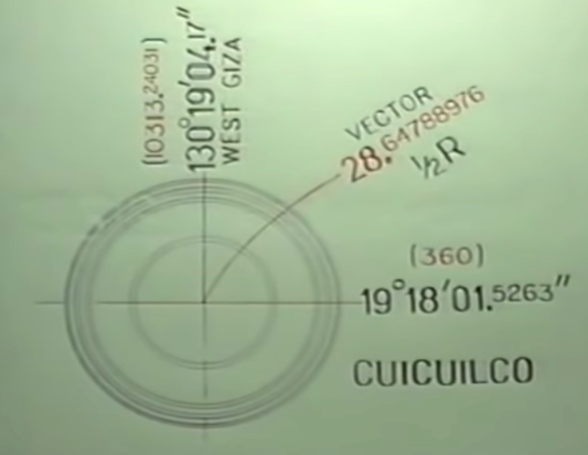 (10313.24031)
130°19'04.17"
WEST GIZA
VECTOR
28.64788976
½R
(360)
19°18'01.5263"
CUICUILCO